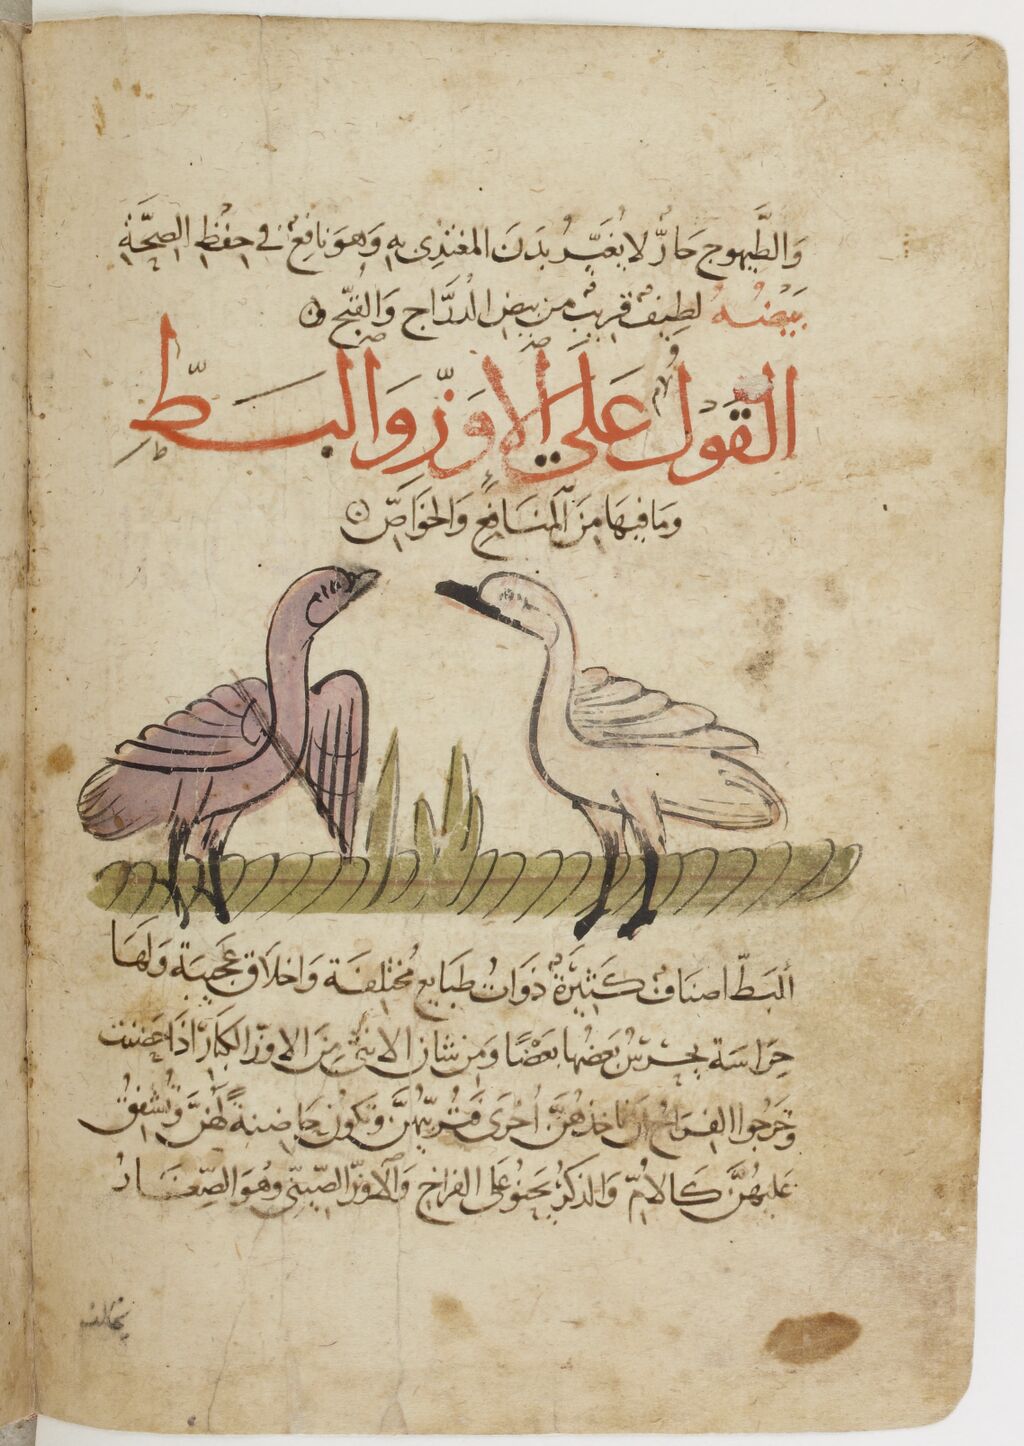 وَالطَّيهوج حَارٌّ لا يُغَيّرُ بدَنَ المغتذِي بهِ وَهوَ نافِعٌ في حِفْظِ الصِحَّةِ
بَيْضُهُ لطِيفٌ قريبٌ من بيضِ الدُرَّاج وَالقَبَج
القَول عَلَى الاوَزّ وَالبَطّ
وما فيهَا مِنَ المنَافِع وَالخوَاصّ
البَطّ اصنَافٌ كَثيرَةٌ ذوَاتُ طبَايعٍ مُختلفَة وَاخلَاقٍ عَجيبَة وَلهَا
حِرَاسَة يحْرسُ بَعضُها بَعْضًا وَمن شان الانثى مِنَ الاوَزّ الكبَار اذَا حَضنت
وَخرجُوا الفرَاخ ان تاخذهُنَّ اُخرَى فتُربّيهُنَّ وَتكونُ حَاضِنةً لهُنَّ وَتُشفِقُ
عَليهُنَّ كَالاُمّ وَالذكرُ يَحنوُ عَلى الفرَاخ وَالاوَزّ الصّينيّ وَهُوَ الصِّغَارُ
يخالف